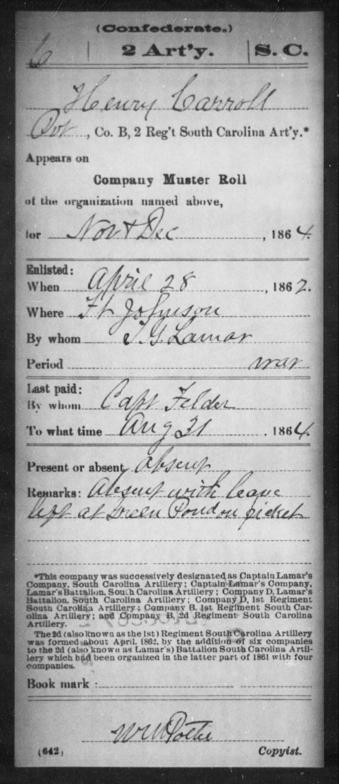 (Confederate.)
C 2 Art'y. S. C.
Henry Carroll
Pvt, Co. B, 2 Reg't South Carolina Art'y.*
Appears on
Company Muster Roll
of the organization named above,
for Nov & Dec, 1864.
Enlisted:
When April 28, 1862.
Where Ft Johnson
By whom T. G. Lamar
Period war
Last paid:
By whom Capt Felder
To what time Aug 31, 1864.
Present or absent Absent
Remarks: Absent with leave
left at Green Pond on picket
*This company was successively designated as Captain Lamar's
Company, South Carolina Artillery; Captain Lamar's Company,
Lamar's Battalion, South Carolina Artillery; Company D, Lamar's
Battalion, South Carolina Artillery; Company D, 1st Regiment
South Carolina Artillery; Company B, 1st Regiment South Car-
olina Artillery; and Company B, 2d Regiment South Carolina
Artillery.
The 2d (also known as the 1st) Regiment South Carolina Artillery
was formed about April, 1862, by the addition of six companies
to the 2d (also known as Lamar's) Battalion South Carolina Artil-
lery which had been organized in the latter part of 1861 with four
companies.
Book mark:
(642) Copyist.